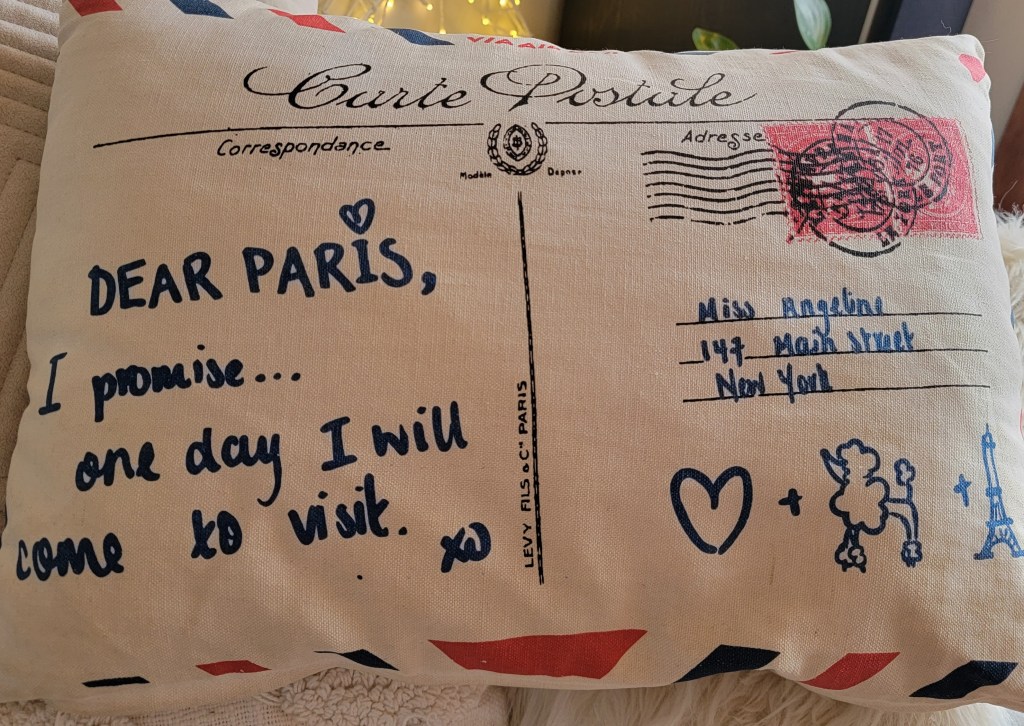 VIA AIR
Carte Postale
Correspondance
Adresse
Modèle Depner
DEAR PARIS,
I promise...
one day I will
come to visit.
xo
LEVY FILS & Cie PARIS
Miss Angeline
147 Main Street
New York